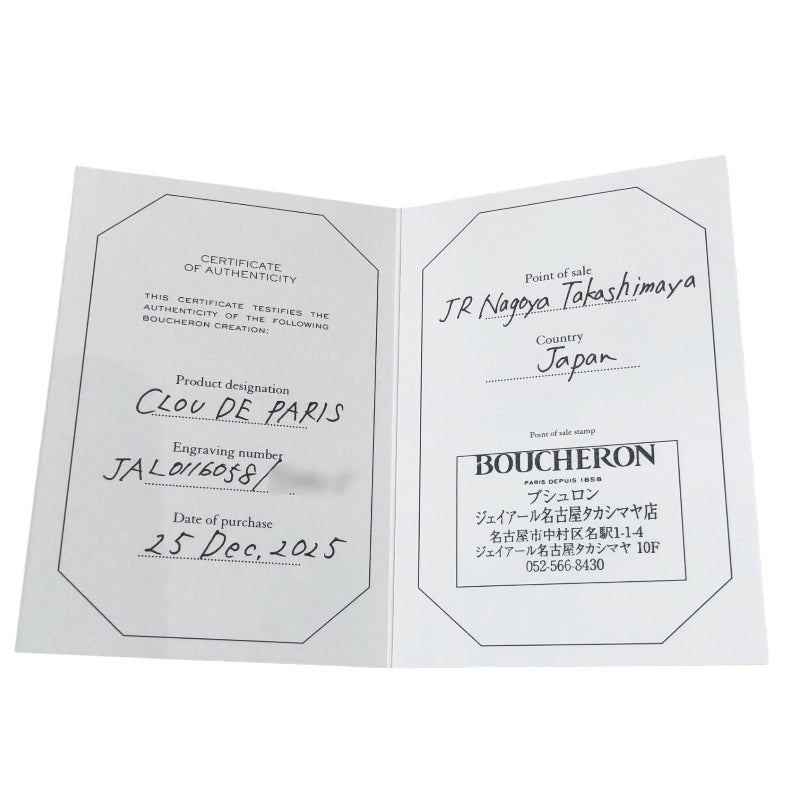 CERTIFICATE
OF AUTHENTICITY
THIS CERTIFICATE TESTIFIES THE
AUTHENTICITY OF THE FOLLOWING
BOUCHERON CREATION:
Product designation
CLOU DE PARIS
Engraving number
JAL0116058/
Date of purchase
25 Dec, 2025
Point of sale
JR Nagoya Takashimaya
Country
Japan
Point of sale stamp
BOUCHERON
PARIS DEPUIS 1858
ブシュロン
ジェイアール名古屋タカシマヤ店
名古屋市中村区名駅1-1-4
ジェイアール名古屋タカシマヤ 10F
052-566-8430